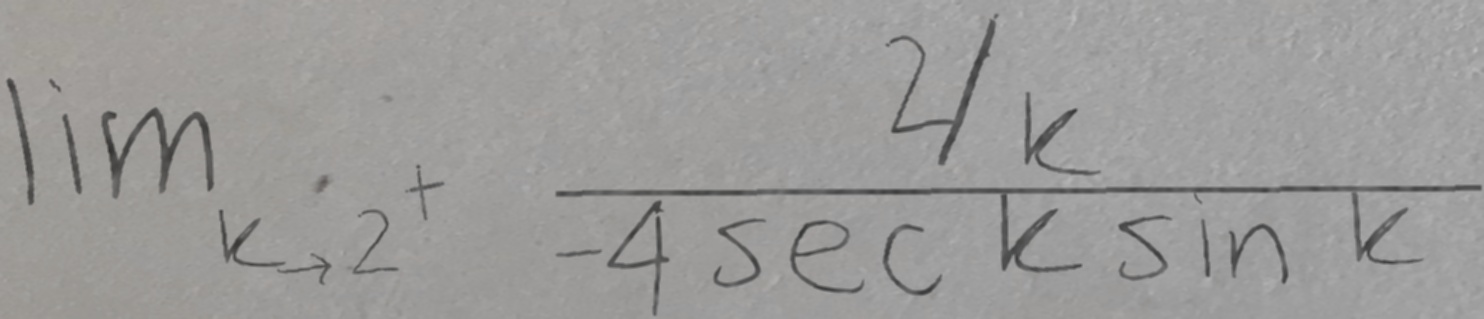 lim k→2⁺ (2/k)/(-4 sec k sin k)